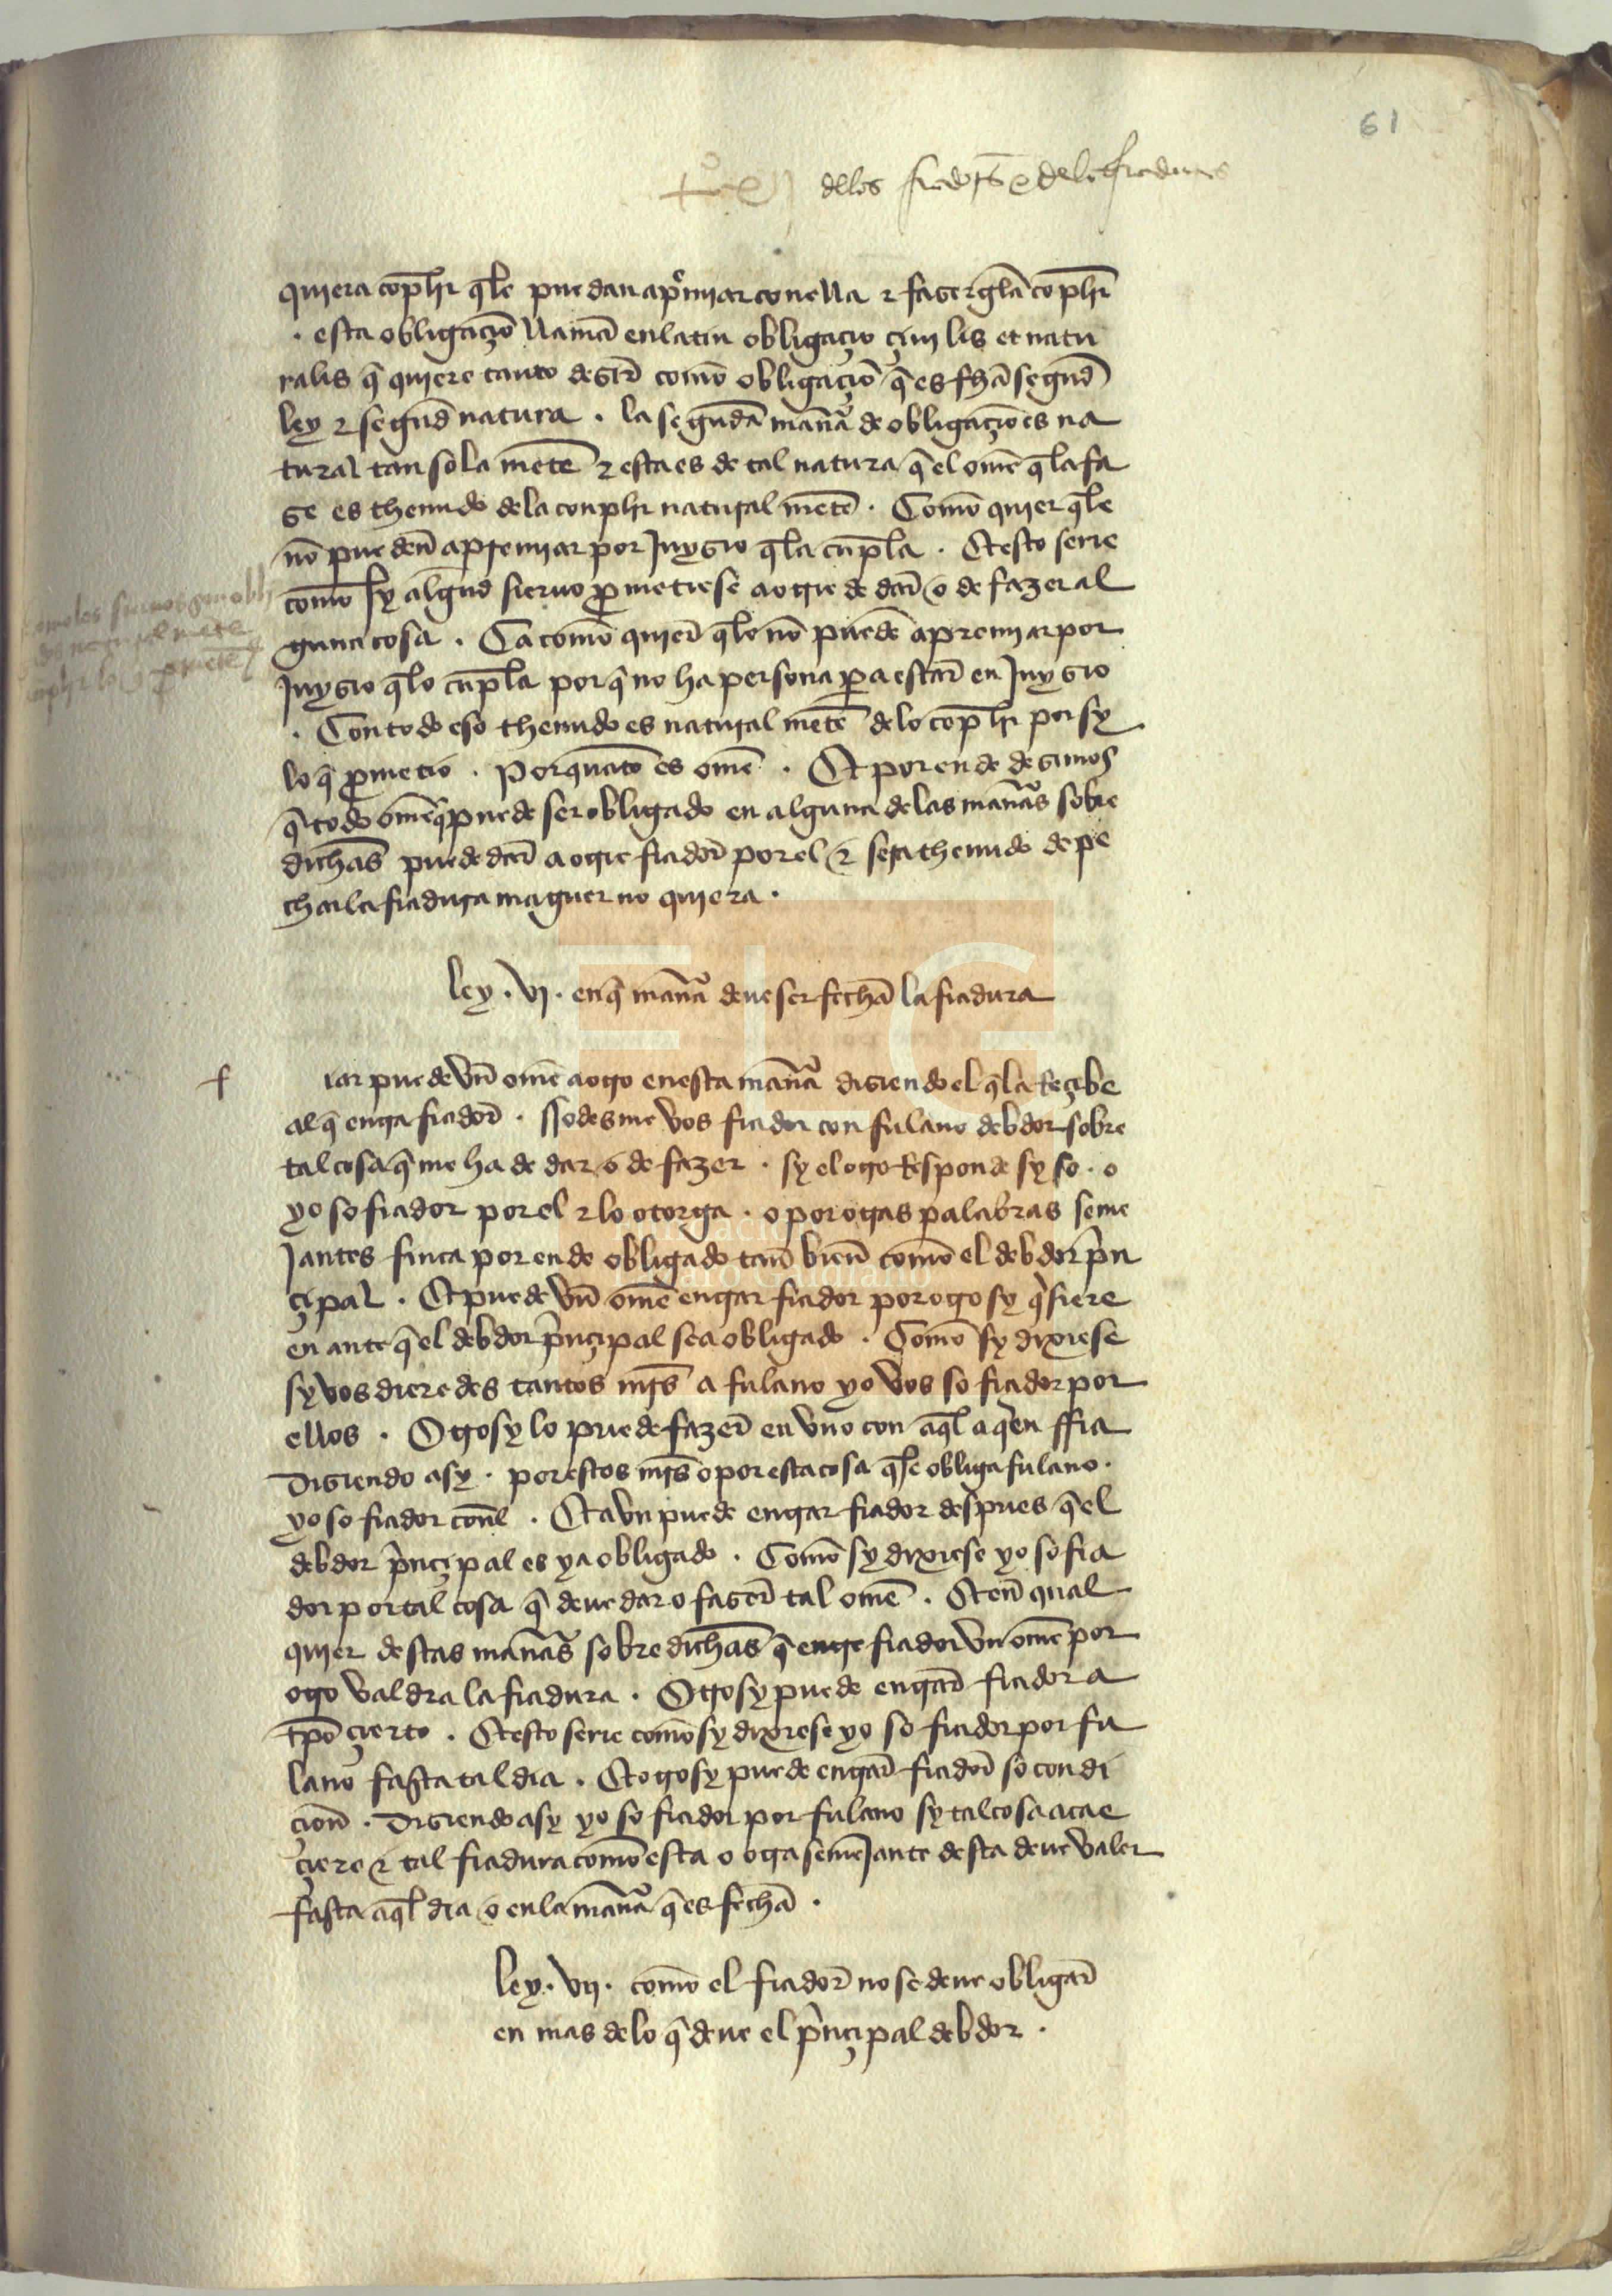 61
dellos fiadores e delas fiaduras
quiera conplir q̃le puedan apremiar con ella ⁊ fasergela conplir
. esta obligaçiõ llamã en latin obligaçio çiuilis et natu
ralis q̃ quiere tanto desir̃ comõ obligaçiõ q̃ es fhã segund̃
ley ⁊ segund̃ natura . la segundã manã de obligaçiõ es na
tural tan sola mẽte ⁊ esta es de tal natura q̃ el omẽ q̃la fa
se es thenudo dela conplir natural mẽte . Comõ quier q̃le
nõ pueden̄ apremiar por Juysio q̃la cũpla . Et esto serie
comõ sy algund̃ sieruo ꝓmetiese a otre de dar̃ o de fazer al
guna cosa . Ca comõ quier̃ q̃le nõ puedẽ apremiar por
Juysio q̃lo cũpla por q̃ no ha persona ꝑa estar̃ en Juysio
. Con todo eso thenudo es natural mẽte delo conplir por sy
lo q̃ ꝓmetio . Por quãto es omẽ . Et por ende desimos
q̃ todo omẽ q̃ puede ser obligado en alguna delas manãs sobre
dichãs puede dar̃ a otre fiador̃ por el ⁊ sera thenudo de pe
char la fiadura maguer no quiera .
ley . vj . en q̃ manã deue ser fechã la fiadura
f
iar puede vñ omẽ a otro en esta manã disiendo el q̃la Reçibe
al q̃ entra fiador̃ . Sodes me vos fiador con fulano debdor sobre
tal cosa q̃ me ha de dar o de fazer . sy el otro Responde sy so . o
yo so fiador por el ⁊ lo otorga . o por otras palabras seme
Jantes finca por ende obligado tan̄ bien̄ comõ el debdor prin
çipal . Et puede vñ omẽ entrar fiador por otro sy q̃siere
en ante q̃ el debdor prinçipal sea obligado . Comõ sy dixiese
sy vos dieredes tantos mrs̃ a fulano yo vos so fiador por
ellos . Otrosy lo puede fazer̃ en vno con aq̃l a quien ffia
Disiendo asy . por estos mrs̃ o por esta cosa q̃ se obliga fulano .
yo so fiador conl̃ . Et avn puede entrar fiador despues q̃ el
debdor prinçipal es ya obligado . Comõ sy dixiese yo so fia
dor por tal cosa q̃ deue dar o faser̃ tal omẽ . Et en̄ qual
quier destas manãs sobre dichãs q̃ entre fiador vn omẽ por
otro valdra la fiadura . Otrosy puede entrar̃ fiador a
tpõ çierto . Et esto serie comõ sy dixiese yo so fiador por fu
lano fasta tal dia . Et otrosy puede entrar̃ fiador̃ so condi
çion̄ . Disiendo asy yo so fiador por fulano sy tal cosa acae
çiere ⁊ tal fiadura comõ esta o otra semeJante desta deue valer
fasta aq̃l dia o en la manã q̃ es fechã .
ley . vij . comõ el fiador̃ no se deue obligar̃
en mas delo q̃ deue el prinçipal debdor .